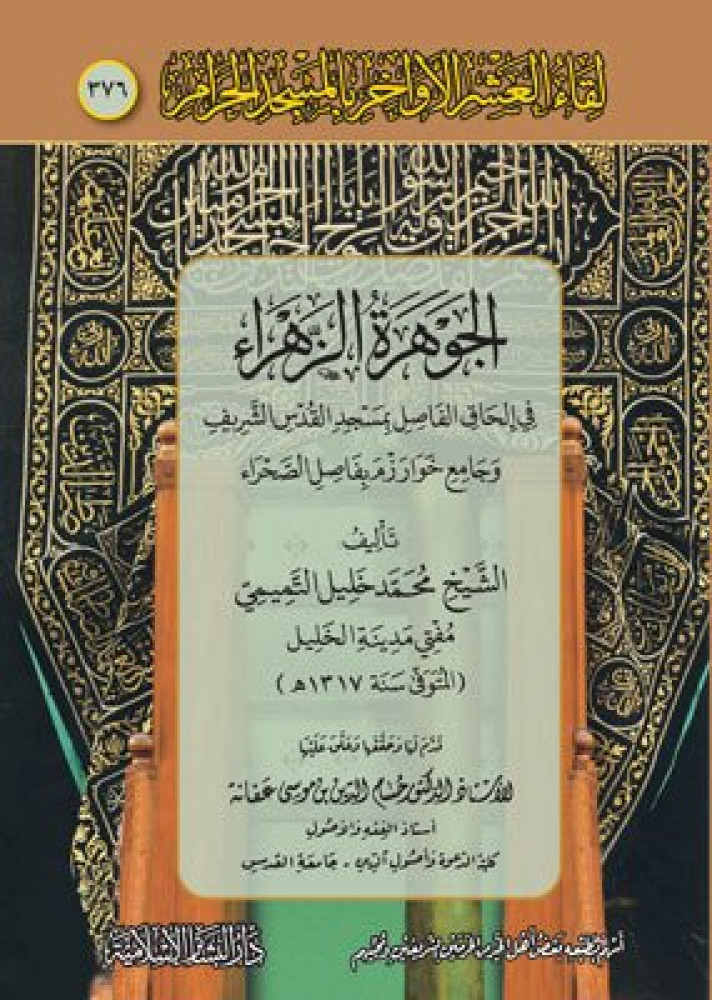 لِقَاءُ العَشْرِ الأَوَاخِرِ بِالمَسْجِدِ الحَرَامِ
٣٧٦
الجَوْهَرَةُ الزَّهْرَاء
فِي إِلْحَاقِ الفَاصِلِ بِمَسْجِدِ القُدْسِ الشَّرِيفِ
وَجَامِعِ خَوَارَزْمَ بِفَاصِلِ الصَّحْرَاء
تَأْلِيفُ
الشَّيْخِ مُحَمَّد خَلِيل التَّمِيمِيّ
مُفْتِي مَدِينَةِ الخَلِيل
(المُتَوَفَّى سَنَة ١٣١٧هـ)
قَدَّمَ لَهَا وَحَقَّقَهَا وَعَلَّقَ عَلَيْهَا
الأستاذ الدكتور حسام الدين بن موسى عفانة
أستاذ الفقه والأصول
كلية الدعوة وأصول الدين - جامعة القدس
أسهم بطبعه بعض أهل الخير من الحرمين الشريفين ومحبيهم
دار البشائر الإسلامية